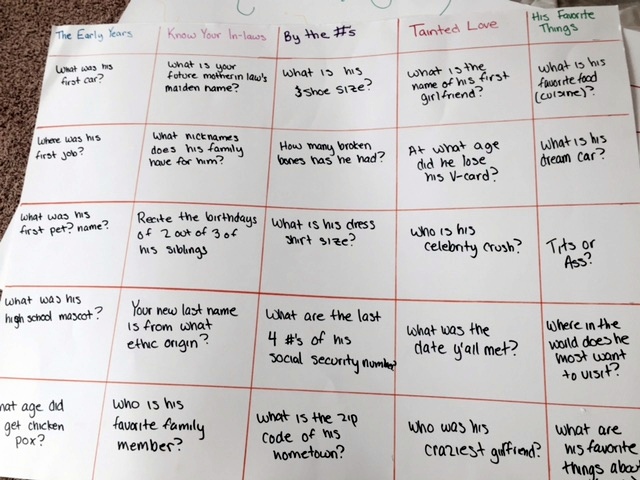 The Early Years
Know Your In-laws
By the #s
Tainted Love
His Favorite
Things
What was his
first car?
What is your
future mother in law's
maiden name?
What is his
$shoe size?
What is the
name of his first
girlfriend?
What is his
favorite food
(cuisine)?
Where was his
first job?
What nicknames
does his family
have for him?
How many broken
bones has he had?
At what age
did he lose
his V-card?
What is his
dream car?
What was his
first pet? name?
Recite the birthdays
of 2 out of 3 of
his siblings
What is his dress
shirt size?
Who is his
celebrity crush?
Tits or
Ass?
What was his
high school mascot?
Your new last name
is from what
ethic origin?
What are the last
4 #'s of his
social security number
What was the
date y'all met?
Where in the
world does he
most want
to visit?
hat age did
get chicken
pox?
Who is his
favorite family
member?
What is the zip
code of his
hometown?
Who was his
craziest girlfriend?
What are
his favorite
things about